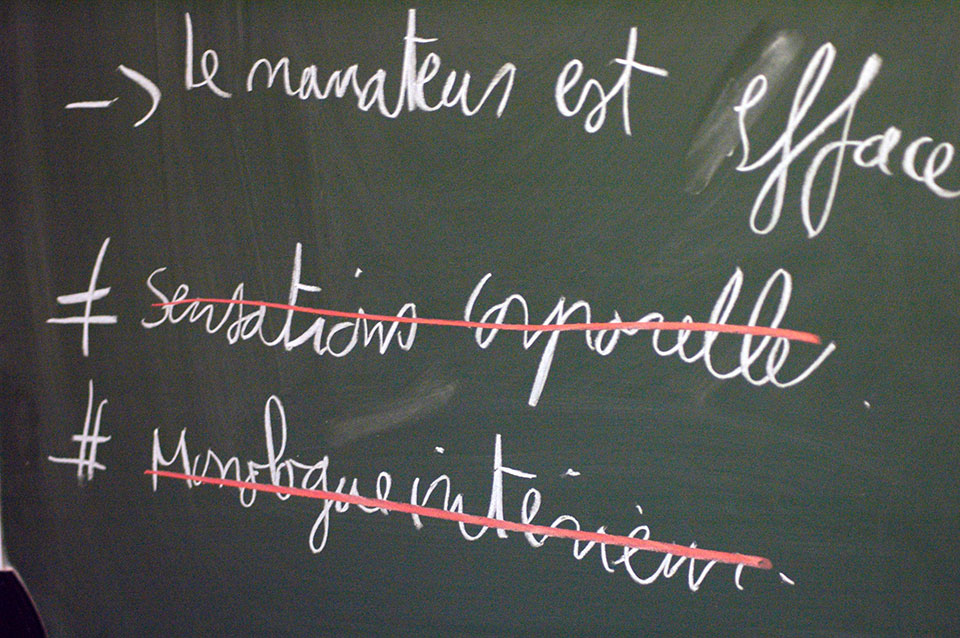 -> Le narrateur est efface
≠ sensations corporelle
≠ Monologue intérieur.